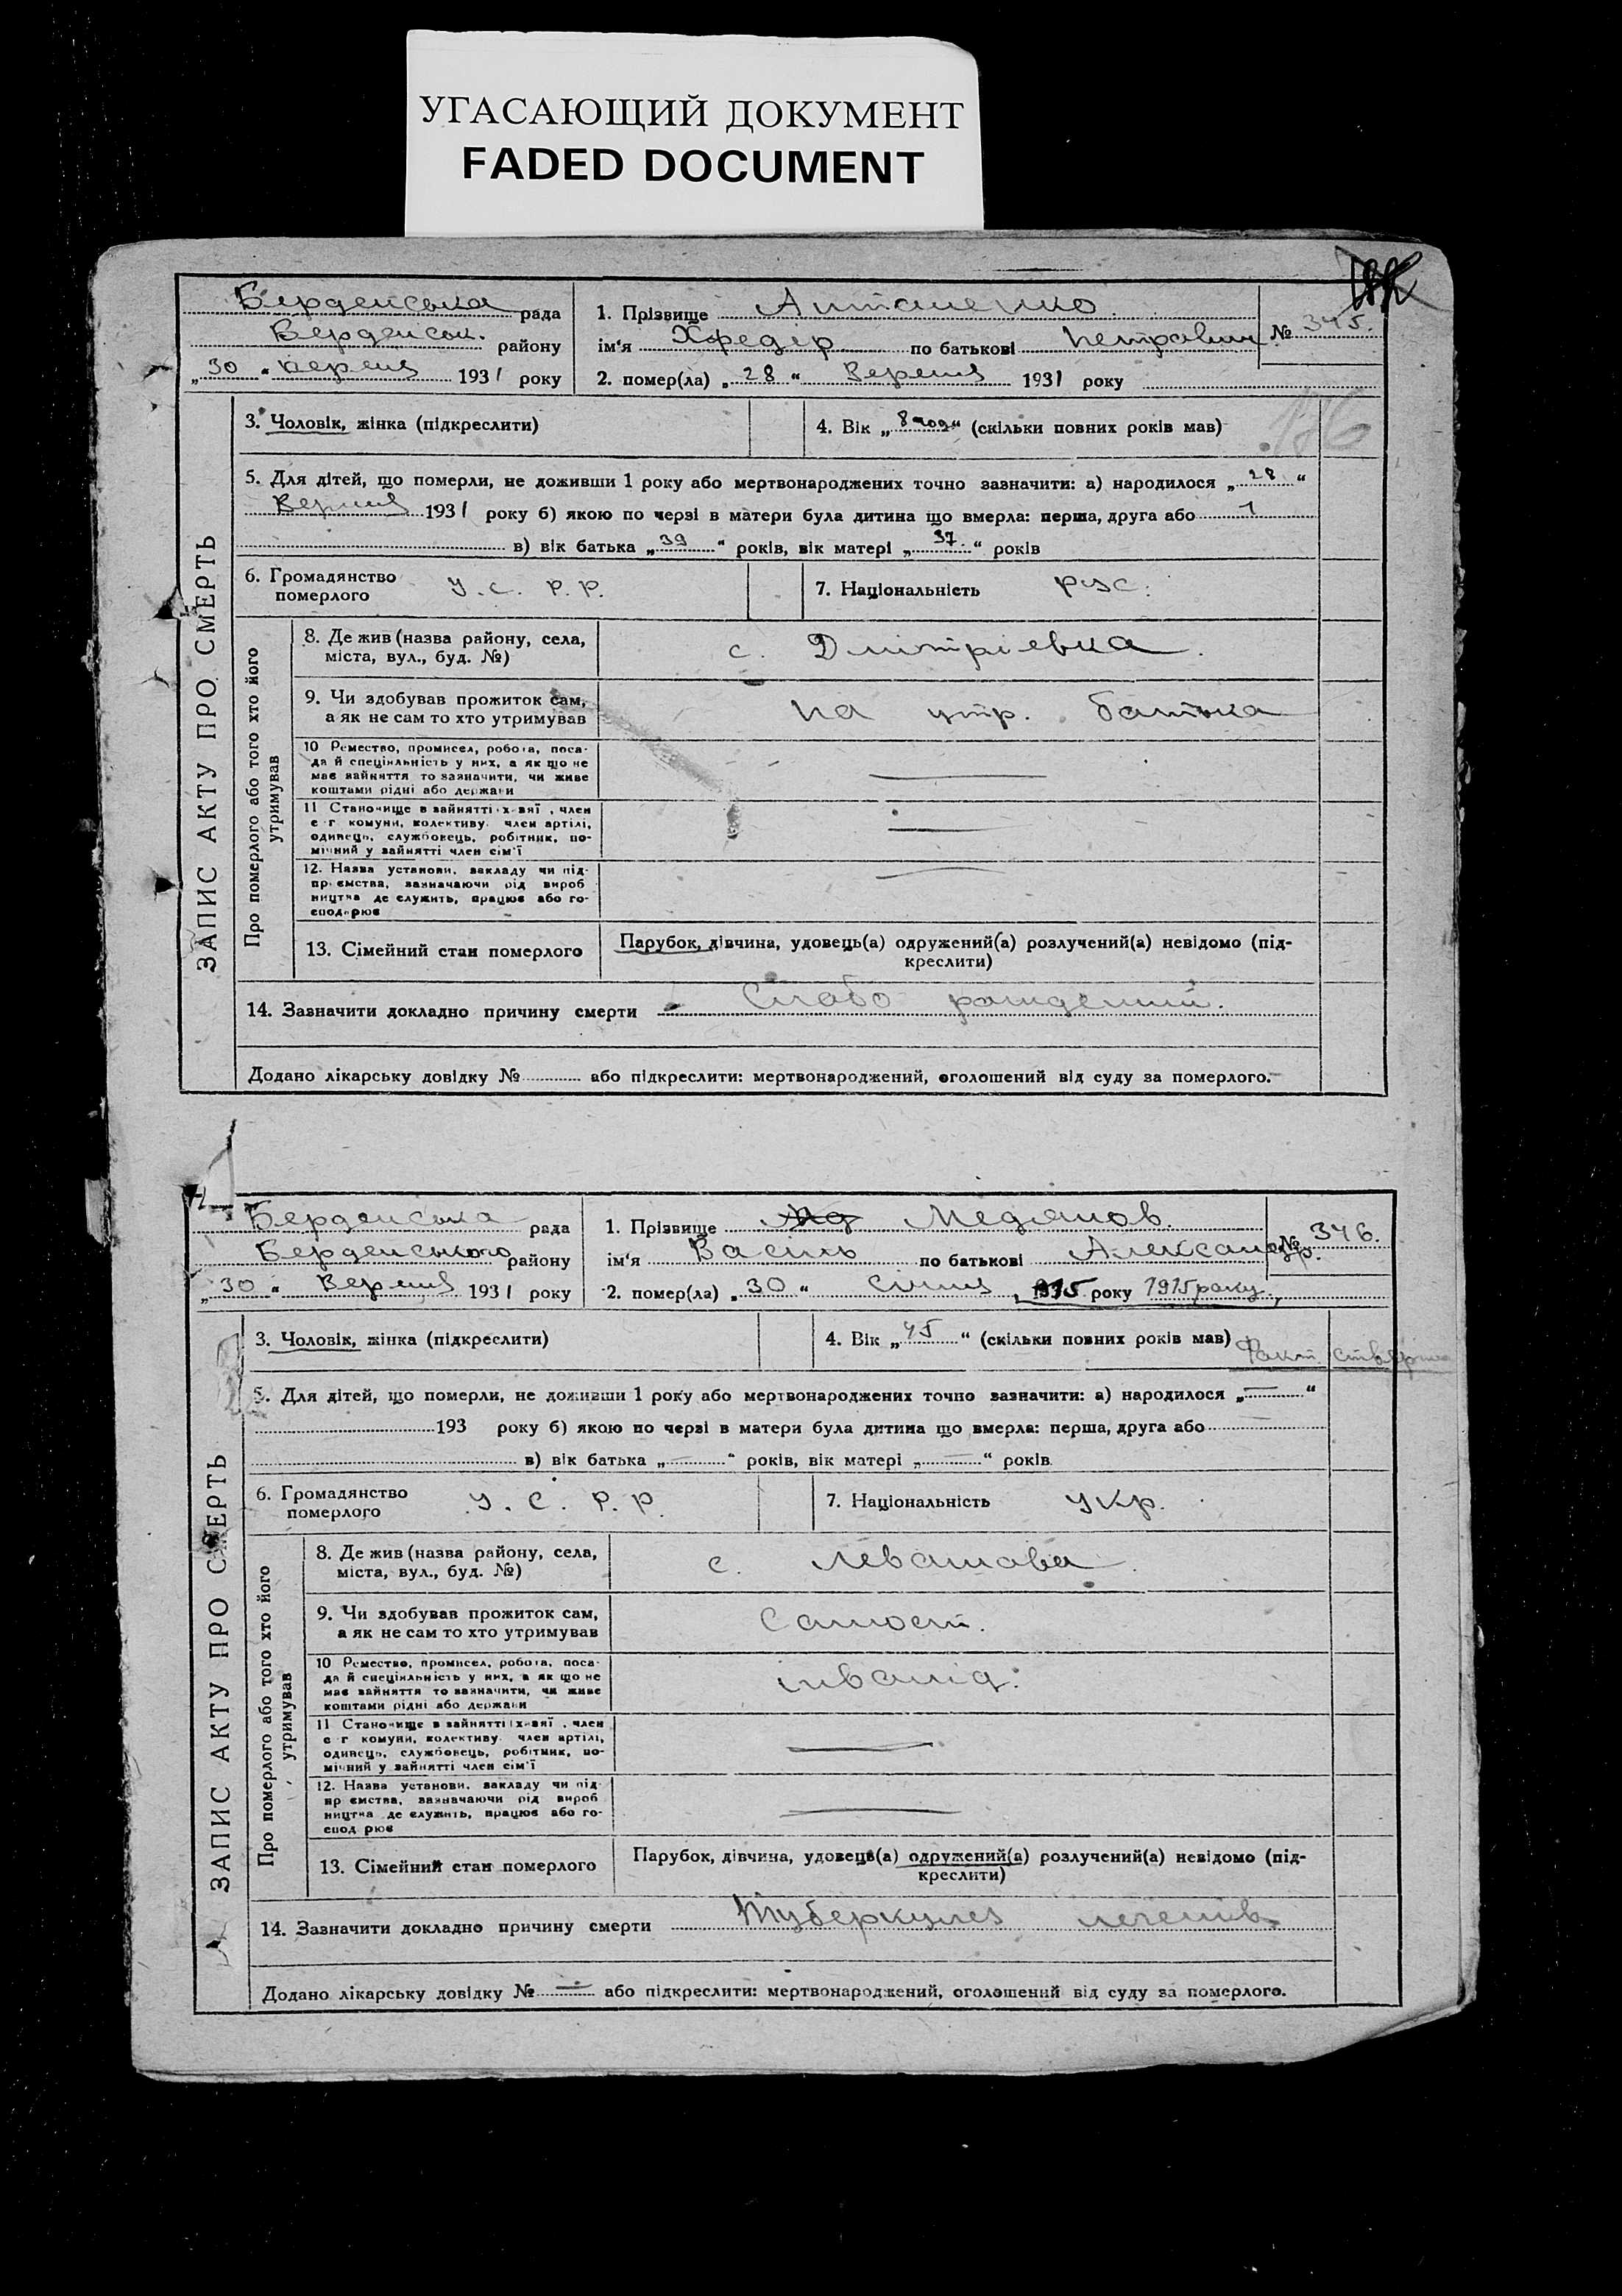 УГАСАЮЩИЙ ДОКУМЕНТ
FADED DOCUMENT
Берденська рада
Берденськ. району
„30“ вересня 1931 року
1. Прізвище Анташенко
ім'я Хфедір по батькові Петрович
№ 345.
2. помер(ла) „28“ Вересня 1931 року
176
ЗАПИС АКТУ ПРО СМЕРТЬ
3. Чоловік, жінка (підкреслити)
4. Вік „8 год“ (скільки повних років мав)
5. Для дітей, що померли, не доживши 1 року або мертвонароджених точно зазначити: а) народилося „28“
Вересня 1931 року б) якою по черзі в матери була дитина що вмерла: перша, друга або 1
в) вік батька „39“ років, вік матері „37“ років
6. Громадянство
померлого
У. С. Р. Р.
7. Національність рус.
Про померлого або того хто його
утримував
8. Де жив (назва району, села,
міста, вул., буд. №)
с. Дмітріевка.
9. Чи здобував прожиток сам,
а як не сам то хто утримував
на утр. батька
10 Ремество, промисел, робота, поса-
да й спеціяльність у них, а як що не
має зайняття то зазначити, чи живе
коштами рідні або держави
11 Становище в зайнятті х-зяї , член
с г комуни, колективу член артілі,
одинець, службовець, робітник, по-
мічний у зайнятті член сім'ї
12. Назва установи, закладу чи під-
пр ємства, зазначаючи рід вироб
ництва де служить, працює або го-
сподарює
13. Сімейний стан померлого
Парубок, дівчина, удовець(а) одружений(а) розлучений(а) невідомо (під-
креслити)
14. Зазначити докладно причину смерти Слабо рожденний.
Додано лікарську довідку № або підкреслити: мертвонароджений, оголошений від суду за померлого.
Берденська рада
Берденського району
„30“ Вересня 1931 року
1. Прізвище Медянов.
ім'я Василь по батькові Александр.
№ 346.
2. помер(ла) „30“ Січня 1915 року 1915 року
ЗАПИС АКТУ ПРО СМЕРТЬ
3. Чоловік, жінка (підкреслити)
4. Вік „45“ (скільки повних років мав)
Факт
5. Для дітей, що померли, не доживши 1 року або мертвонароджених точно зазначити: а) народилося „—“
193 року б) якою по черзі в матери була дитина що вмерла: перша, друга або
в) вік батька „—“ років, вік матері „—“ років
6. Громадянство
померлого
У. С. Р. Р.
7. Національність укр.
Про померлого або того хто його
утримував
8. Де жив (назва району, села,
міста, вул., буд. №)
с. Левашова
9. Чи здобував прожиток сам,
а як не сам то хто утримував
Самост.
10 Ремество, промисел, робота, поса-
да й спеціяльність у них, а як що не
має зайняття то зазначити, чи живе
коштами рідні або держави
інвалід.
11 Становище в зайнятті х-зяї , член
с г комуни, колективу член артілі,
одинець, службовець, робітник, по-
мічний у зайнятті член сім'ї
12. Назва установи, закладу чи під
пр ємства, зазначаючи рід вироб
ництва де служить, працює або го-
спод рює
13. Сімейний стан померлого
Парубок, дівчина, удовець(а) одружений(а) розлучений(а) невідомо (під-
креслити)
14. Зазначити докладно причину смерти Туберкулез легенів.
Додано лікарську довідку № — або підкреслити: мертвонароджений, оголошений від суду за померлого.